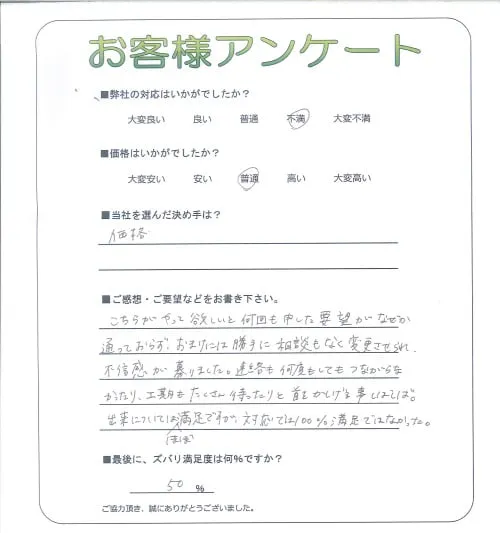 お客様アンケート
■弊社の対応はいかがでしたか？
大変良い 良い 普通 不満 大変不満
■価格はいかがでしたか？
大変安い 安い 普通 高い 大変高い
■当社を選んだ決め手は？
価格
■ご感想・ご要望などをお書き下さい。
こちらがやって欲しいと何回も申した要望がなぜか
通っておらず、おまけには勝手に相談もなく変更させられ、
不信感が募りました。連絡も何度もしてもつながらな
かったり、工期もたくさん待ったりと首をかしげる事しばしば。
出来については満足ですが、対応では100%満足ではなかった。
ほぼ
■最後に、ズバリ満足度は何%ですか？
50 %
ご協力頂き、誠にありがとうございました。